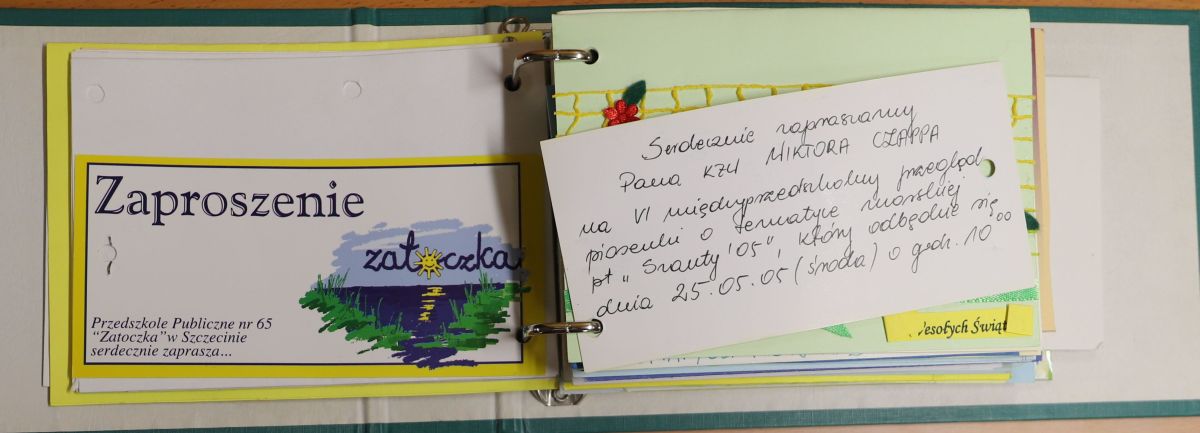 Zaproszenie
zatoczka
Przedszkole Publiczne nr 65
"Zatoczka" w Szczecinie
serdecznie zaprasza...
Serdecznie zapraszamy
Pana KZW WIKTORA CZAPPA
na VI międzyprzedszkolny przegląd
piosenki o tematyce morskiej
pt „Szanty '05", który odbędzie się
dnia 25.05.05 (środa) o godz. 10⁰⁰
Wesołych Świąt